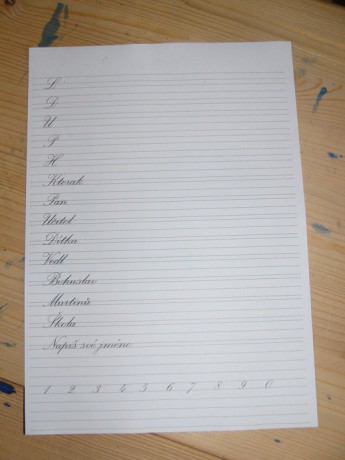 S
D
U
P
H
Kterak
Pan
Učitel
Dítka
Vedl
Bohuslav
Martinů
Škola
Napiš své jméno
1 2 3 4 5 6 7 8 9 0